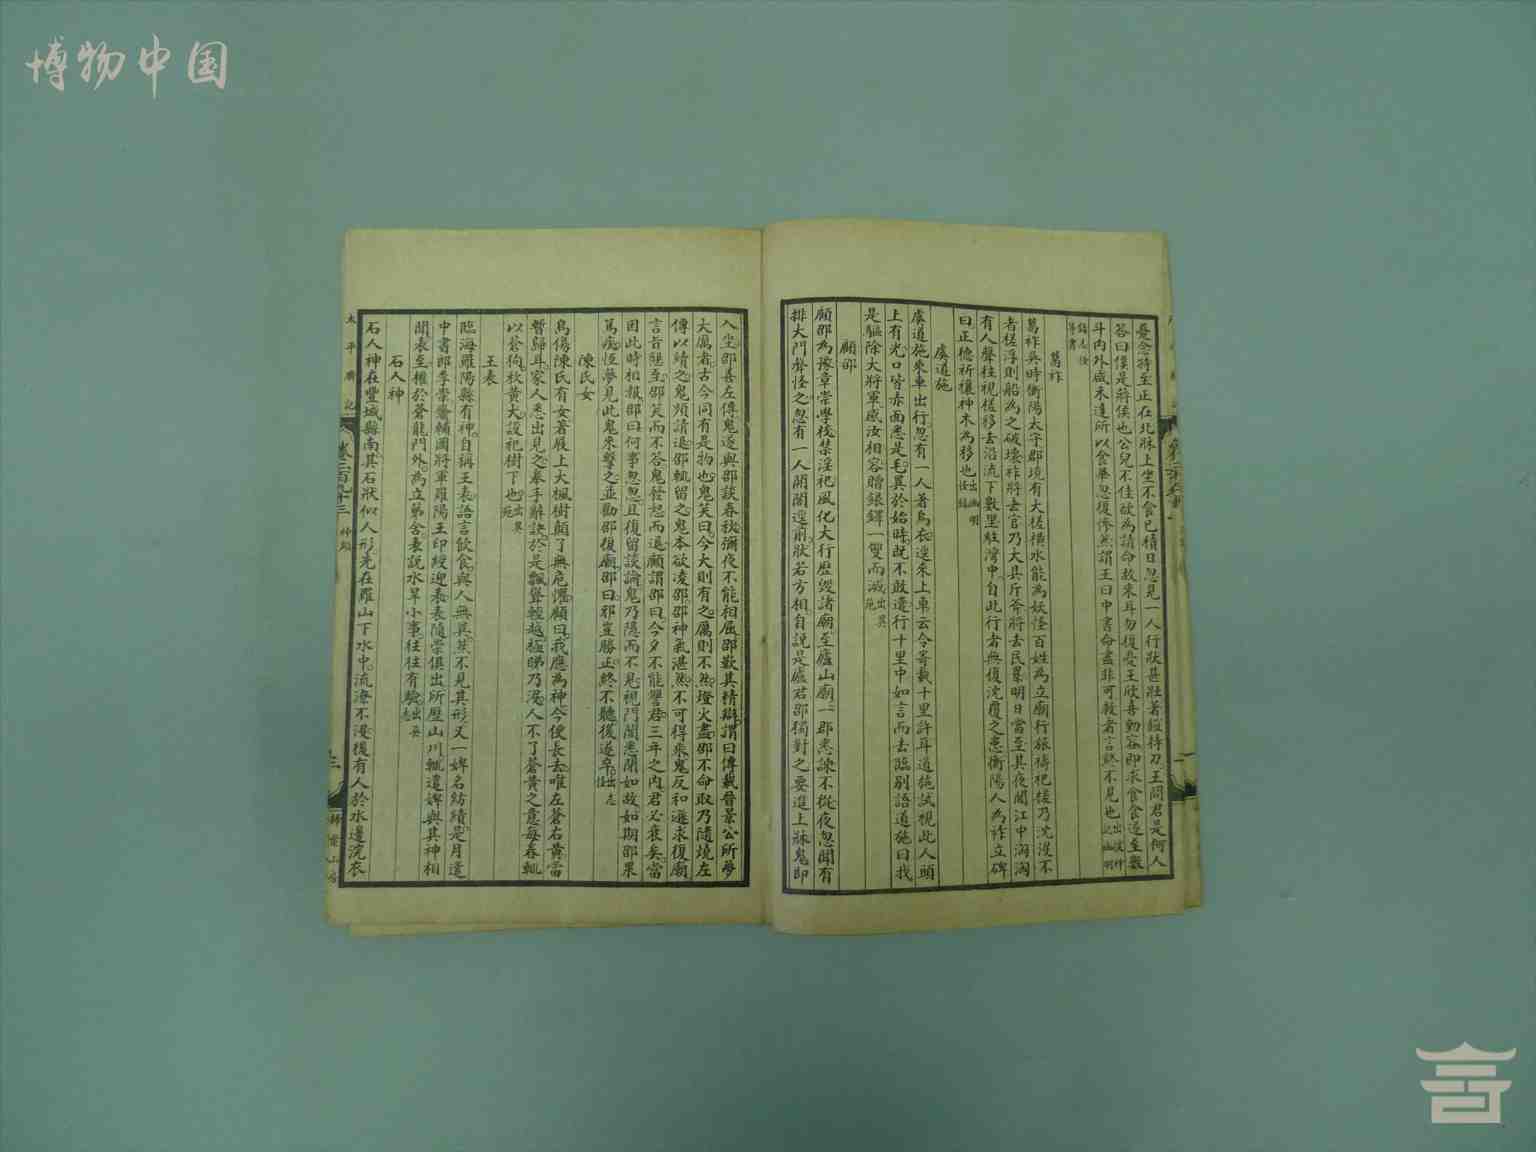 博物中国
憂念特至正在北牀上坐不食已積日忽見一人行狀甚壯著鎧持刀王問君是何人
答曰僕是將侯也公兒不佳欲為請命故來耳勿復憂王欣喜動容即求食食遂至數
斗內外咸未達所以食畢忽復慘然謂王曰中書命盡非可救者言終不見也
葛祚
葛祚吳時衡陽太守郡境有大槎橫水能為妖怪百姓為立廟行旅禱祀槎乃沈沒不
者槎浮則船為之破壞祚將去官乃大具斤斧將去民累明日當至其夜聞江中洶洶
有人聲往視槎移去沿流下數里駐灣中自此行者無復沈覆之患衡陽人為祚立碑
曰正德祈禳神木為移也出幽明
虞道施
虞道施乘車出行忽有一人著烏衣逕來上車云令寄載十里許耳道施試視此人頭
上有光口皆赤面悉是毛異於始時既不敢遣行十里中如言而去臨別語道施曰我
是驅除大將軍感汝相容贈銀鐸一雙而滅出異苑
顧邵
顧邵為豫章崇學校禁淫祀風化大行歷毀諸廟至廬山廟一郡悉諫不從夜忽聞有
排大門聲怪之忽有一人開閣逕前狀若方相自說是廬君邵獨對之要進上牀鬼即
入坐邵善左傳鬼遂與邵談春秋彌夜不能相屈邵歎其精辯謂曰傳載晉景公所夢
大厲者古今同有是物也鬼笑曰今大則有之厲則不然燈火盡邵不命取乃隨燒左
傳以續之鬼頻請退邵輒留之鬼本欲凌邵邵神氣湛然不可得乘鬼反和遜求復廟
言旨懇至邵笑而不答鬼發怒而退顧謂邵曰今夕不能讐君三年之內君必衰矣當
因此時相報邵曰何事怱怱且復留談論鬼乃隱而不見視門閣悉閉如故如期邵果
篤疾恆夢見此鬼來擊之並勸邵復廟邵曰邪豈勝正終不聽後遂卒出志怪
陳氏女
烏傷陳氏有女著屐上大楓樹顛了無危懼顧曰我應為神今便長去唯左蒼右黃當
暫歸耳家人悉出見之舉手辭訣於是飄聳輕越極睇乃沒人不了蒼黃之意每春輒
以蒼狗秋黃犬設祀樹下也出異苑
王表
臨海羅陽縣有神自稱王表語言飲食與人無異然不見其形又一婢名紡績是月遣
中書郎李崇齎輔國將軍羅陽王印綬迎表表隨崇俱出所歷山川輒遣婢與其神相
聞表至權於蒼龍門外為立第舍表說水旱小事往往有驗出吳志
石人神
石人神在豐城縣南其石狀似人形先在羅山下水中流潦不沒後有人於水邊浣衣
太平廣記
卷二百九十三
神類
三